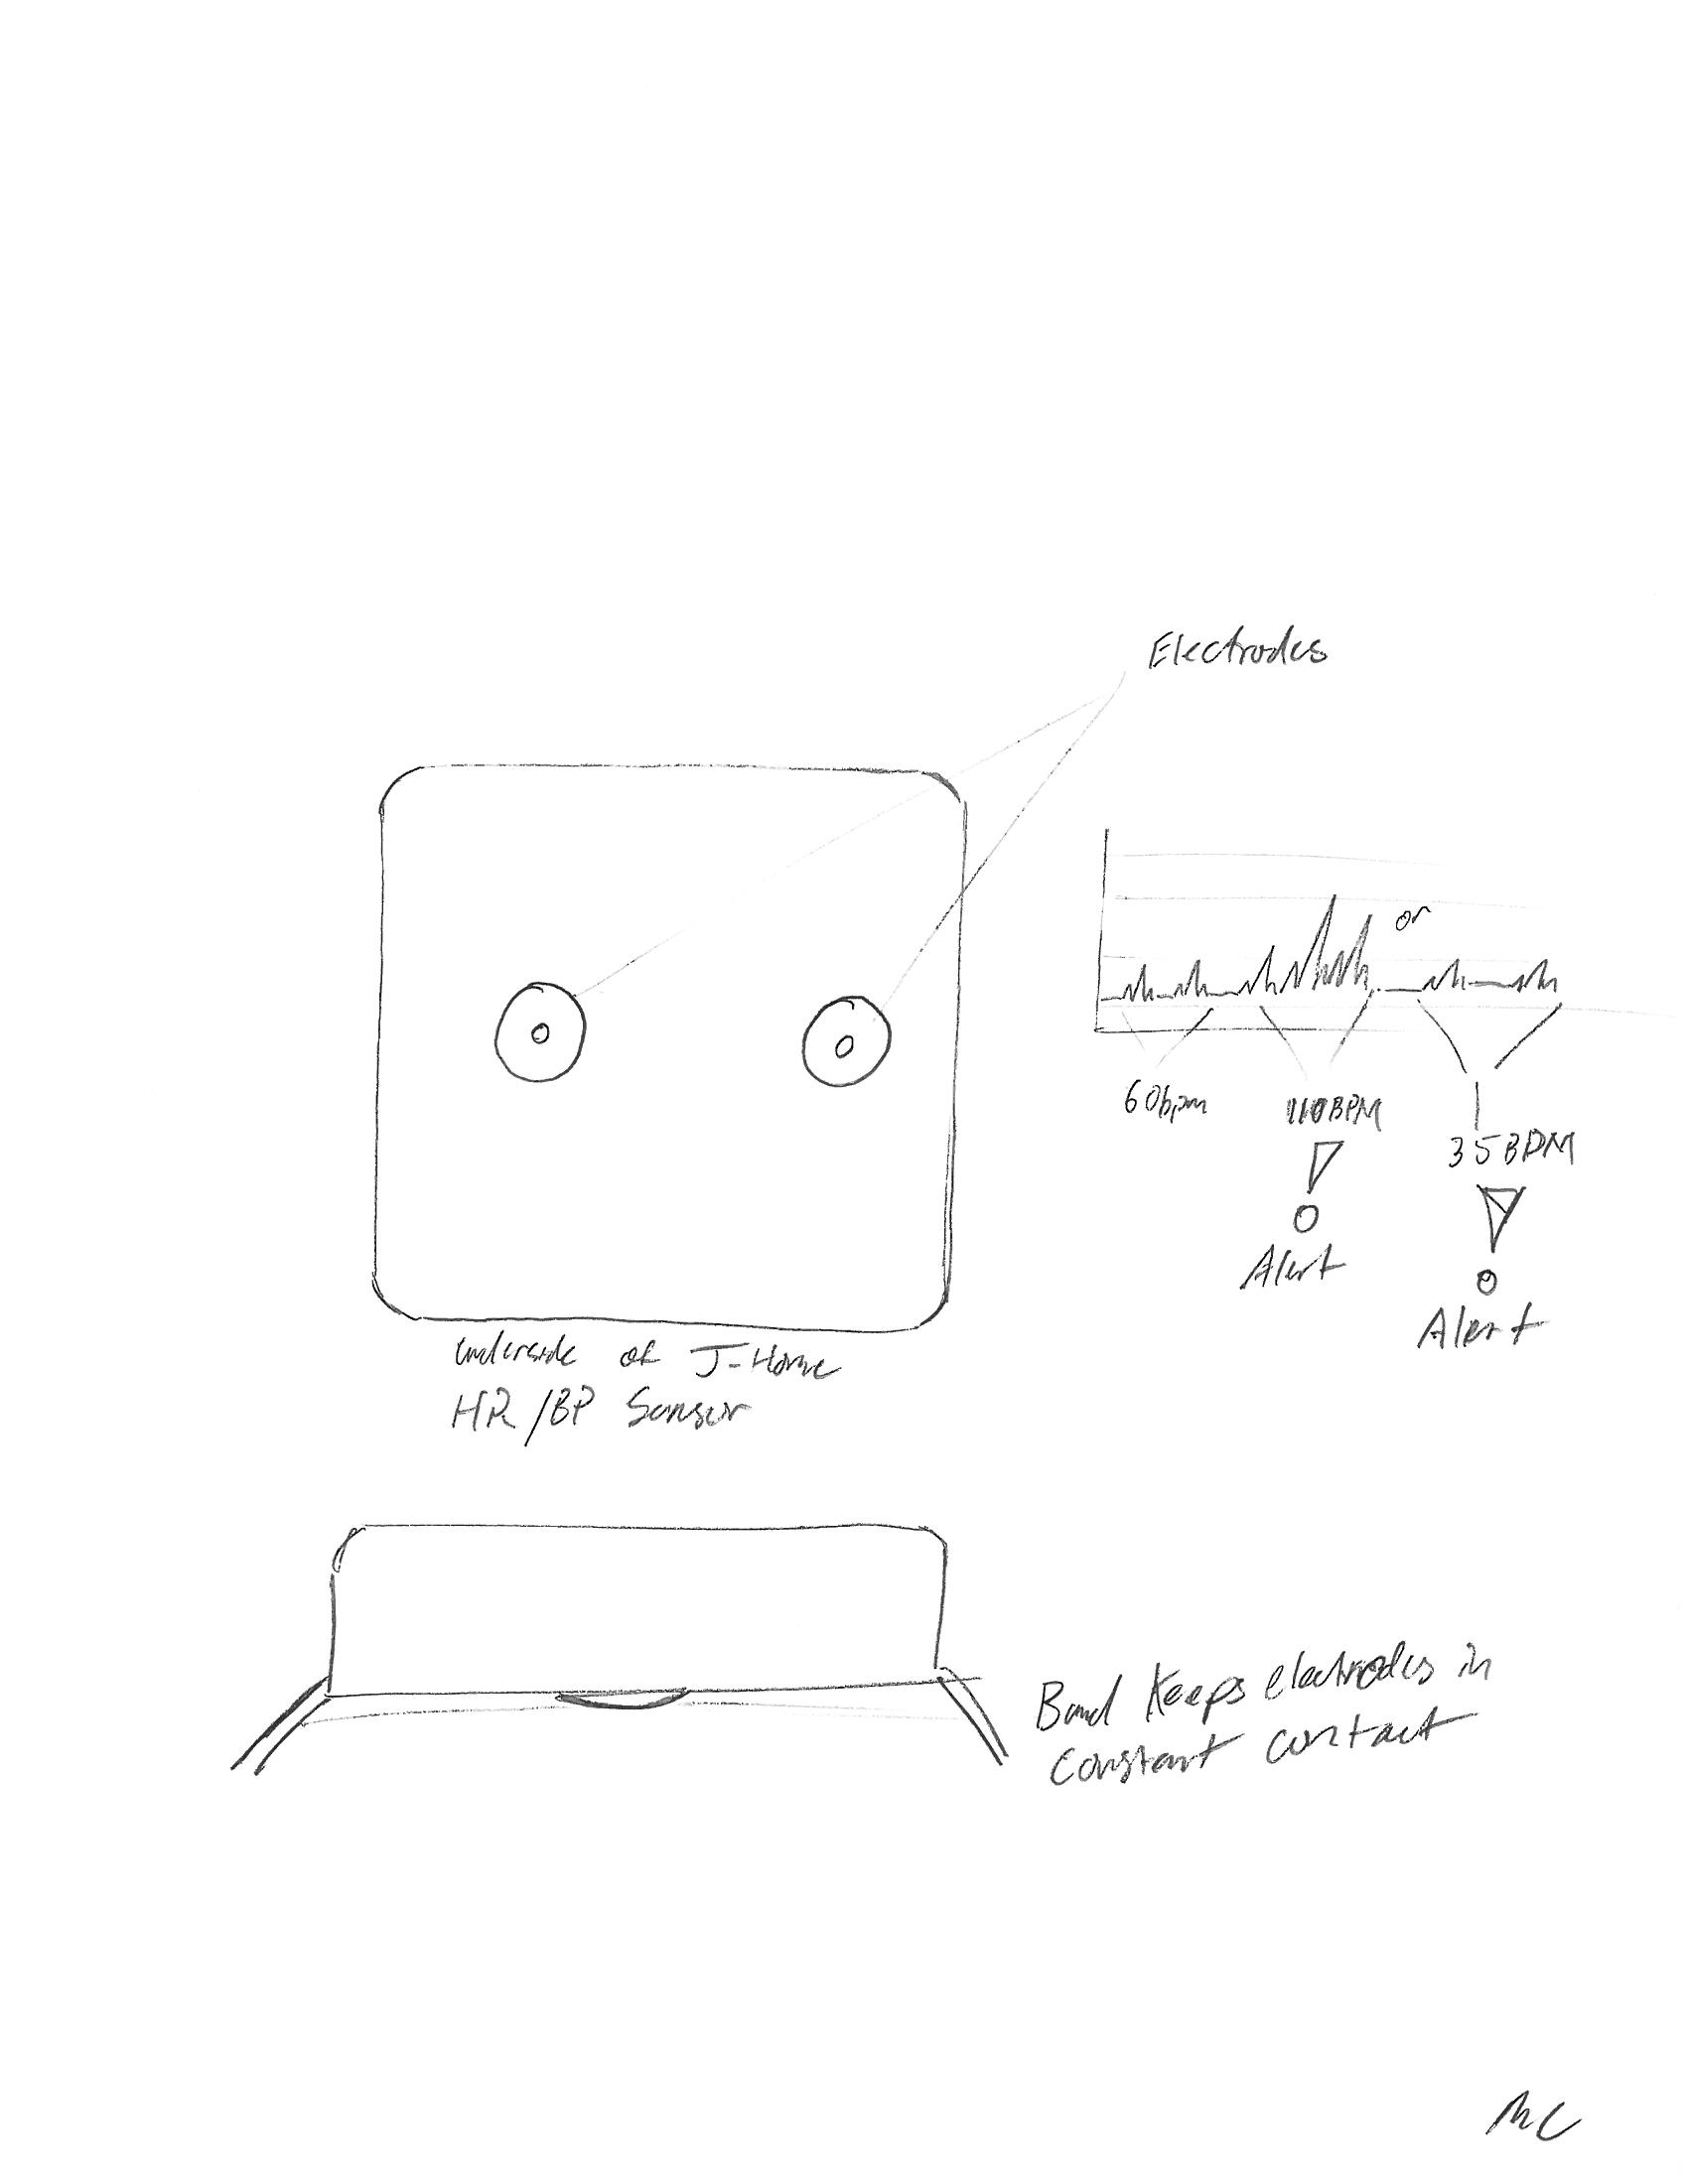 Electrodes
or
60bpm
110BPM
35BPM
Alert
Alert
Underside of J-Home
HR/BP Sensor
Band Keeps electrodes in
constant contact
MC